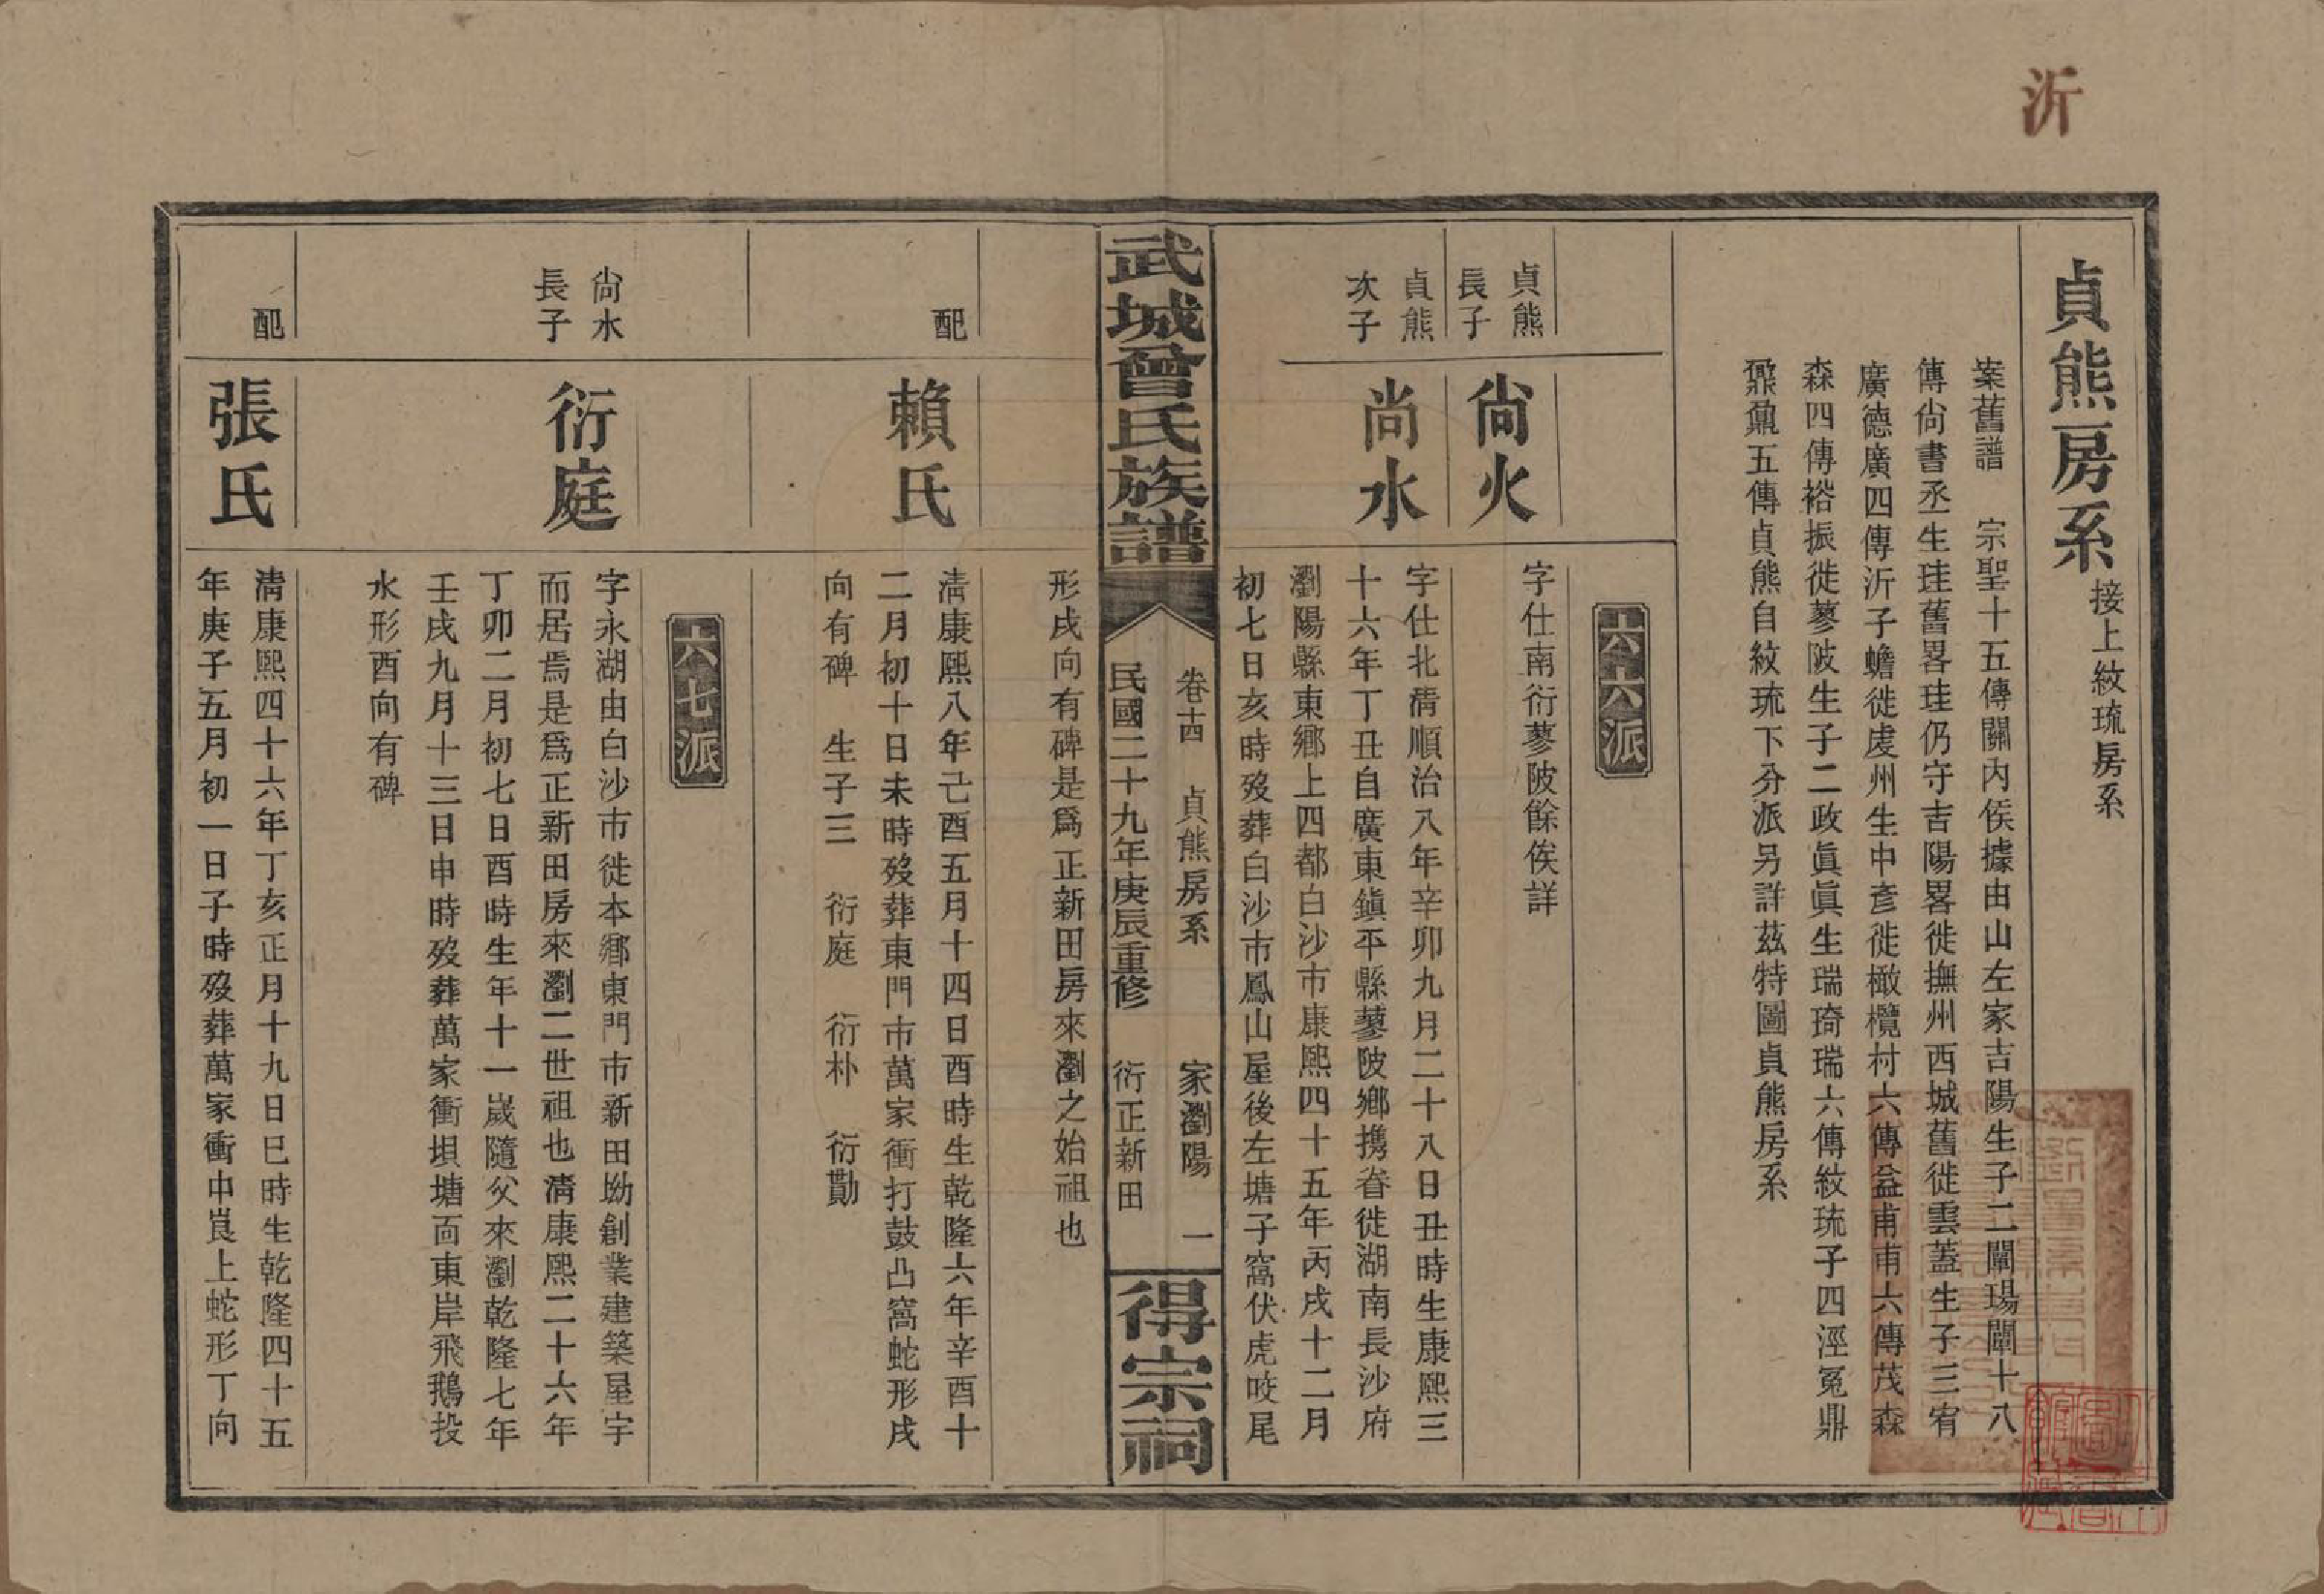 沂
貞熊房系 接上紋琉房系
案舊譜　宗聖十五傳關內侯據由山左家吉陽生子二闡瑒闡十八
傳尙書丞生珪舊畧珪仍守吉陽畧徙撫州西城舊徙雲蓋生子三宥
廣德廣四傳沂子蟾徙虔州生中彥徙橄欖村六傳益甫甫六傳茂森
森四傳裕振徙蓼陂生子二政眞眞生瑞琦瑞六傳紋琉子四涇冤鼎
鼐鼏五傳貞熊自紋琉下分派另詳茲特圖貞熊房系
六六派
貞熊
長子
尙火
字仕南衍蓼陂餘俟詳
貞熊
次子
尚水
字仕北淸順治八年辛卯九月二十八日丑時生康熙三
十六年丁丑自廣東鎭平縣蓼陂鄕携眷徙湖南長沙府
瀏陽縣東鄕上四都白沙市康熙四十五年丙戌十二月
初七日亥時歿葬白沙市鳳山屋後左塘子窩伏虎咬尾
武城曾氏族譜
卷十四　貞熊房系　家瀏陽　一
民國二十九年庚辰重修　衍正新田
得宗祠
形戌向有碑是爲正新田房來瀏之始祖也
配
賴氏
淸康熙八年己酉五月十四日酉時生乾隆六年辛酉十
二月初十日未時歿葬東門市萬家衝打鼓凸窩蛇形戌
向有碑　生子三　衍庭　衍朴　衍勷
六七派
尙水
長子
衍庭
字永湖由白沙市徙本鄕東門市新田坳創業建築屋宇
而居焉是爲正新田房來瀏二世祖也淸康熙二十六年
丁卯二月初七日酉時生年十一歲隨父來瀏乾隆七年
壬戌九月十三日申時歿葬萬家衝垻塘面東岸飛鵝投
水形酉向有碑
配
張氏
淸康熙四十六年丁亥正月十九日巳時生乾隆四十五
年庚子五月初一日子時歿葬萬家衝中崀上蛇形丁向